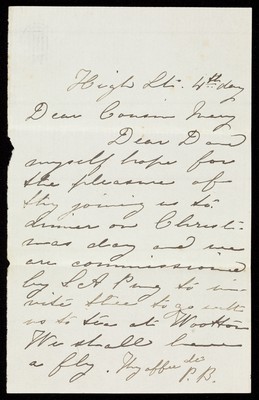 High St. 4th day
Dear Cousin Mary
Dear D and
myself hope for
the pleasure of
thy joining us to
dinner on Christ-
mas day and we
are commissioned
by S A P
to in-
vite thee to go with
us to tea at Wootton
We shall have
a fly. Thy affec
P. B.